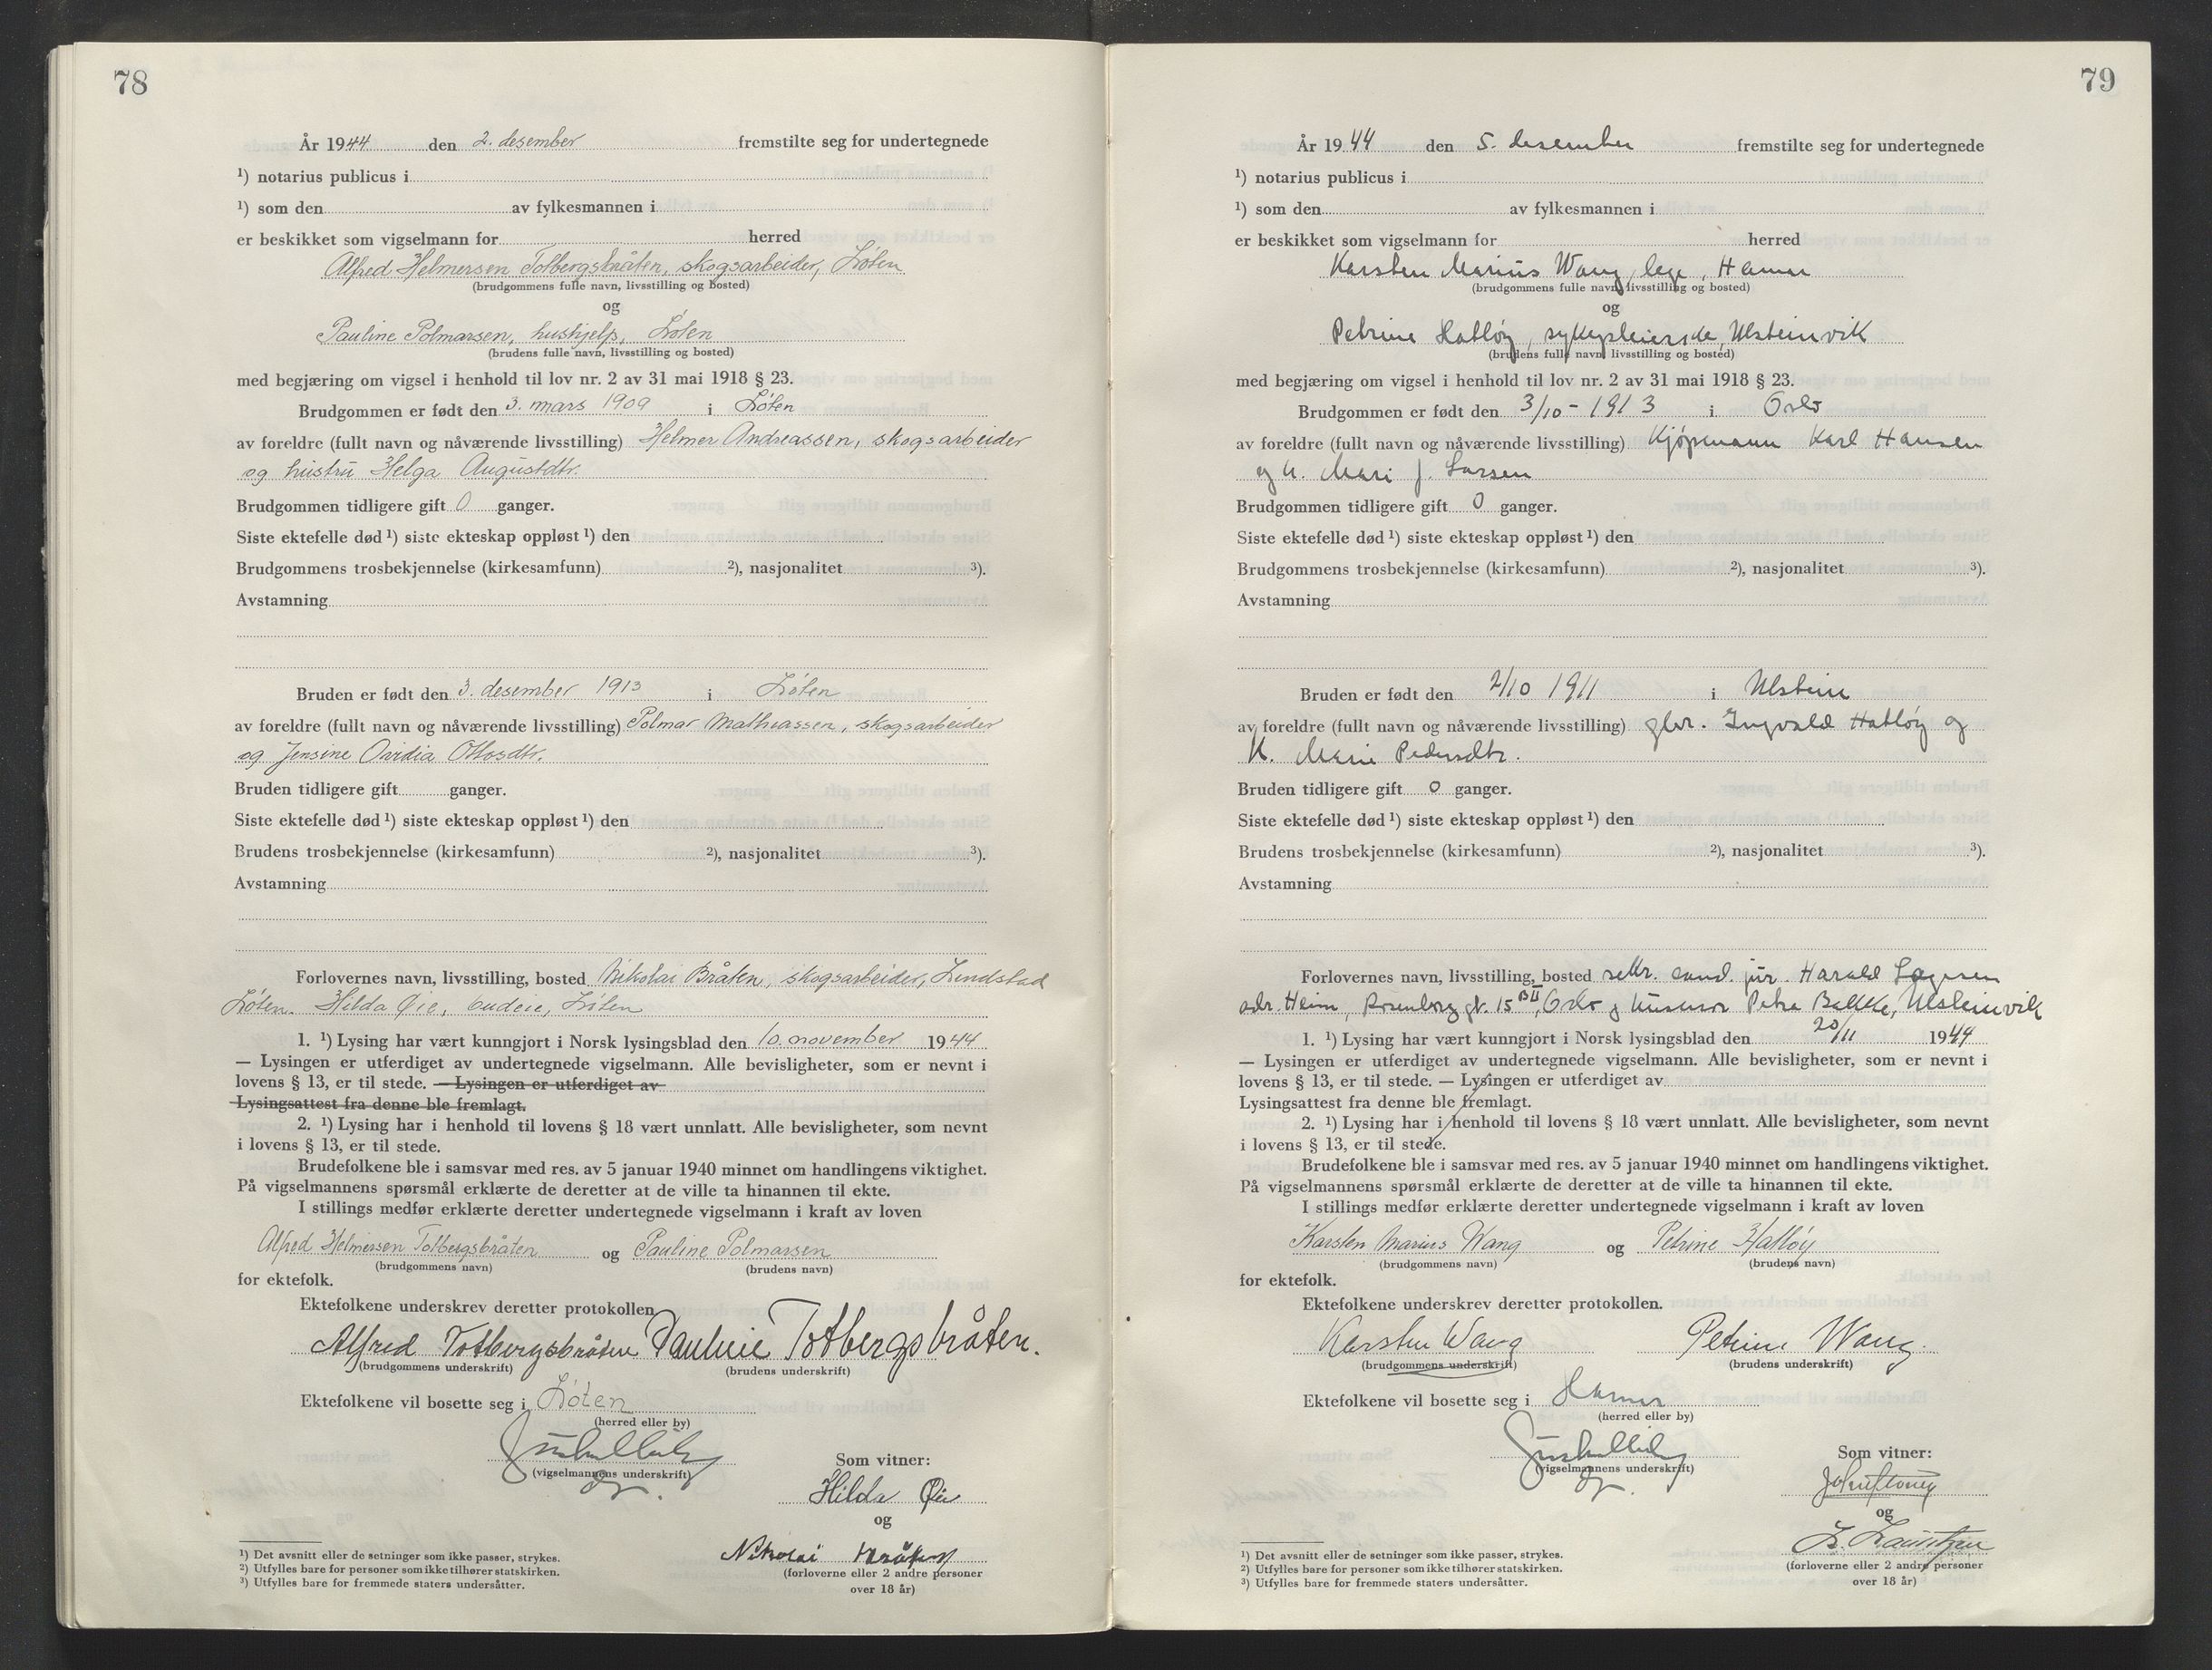 78
År 1944 den 2. desember fremstilte seg for undertegnede
¹) notarius publicus i
¹) som den av fylkesmannen i
er beskikket som vigselmann for herred
Alfred Helmersen Totbergsbråten, skogsarbeider, Løten
(brudgommens fulle navn, livsstilling og bosted)
og
Pauline Polmarsen, hushjelp, Løten
(brudens fulle navn, livsstilling og bosted)
med begjæring om vigsel i henhold til lov nr. 2 av 31 mai 1918 § 23.
Brudgommen er født den 3. mars 1909 i Løten
av foreldre (fullt navn og nåværende livsstilling) Helmer Andreassen, skogsarbeider
og hustru Helga Augustdtr.
Brudgommen tidligere gift 0 ganger.
Siste ektefelle død ¹) siste ekteskap oppløst ¹) den
Brudgommens trosbekjennelse (kirkesamfunn) ²), nasjonalitet ³).
Avstamning
Bruden er født den 3. desember 1913 i Løten
av foreldre (fullt navn og nåværende livsstilling) Polmar Mathiassen, skogsarbeider
og Jensine Ovidia Ottosdtr.
Bruden tidligere gift ganger.
Siste ektefelle død ¹) siste ekteskap oppløst ¹) den
Brudens trosbekjennelse (kirkesamfunn) ²), nasjonalitet ³).
Avstamning
Forlovernes navn, livsstilling, bosted Nikolai Bråten, skogsarbeider, Lindstad
Løten. Hilda Øie, budeie, Løten
1. ¹) Lysing har vært kunngjort i Norsk lysingsblad den 10. november 1944
— Lysingen er utferdiget av undertegnede vigselmann. Alle bevisligheter, som er nevnt i
lovens § 13, er til stede. — Lysingen er utferdiget av
Lysingsattest fra denne ble fremlagt.
2. ¹) Lysing har i henhold til lovens § 18 vært unnlatt. Alle bevisligheter, som nevnt
i lovens § 13, er til stede.
Brudefolkene ble i samsvar med res. av 5 januar 1940 minnet om handlingens viktighet.
På vigselmannens spørsmål erklærte de deretter at de ville ta hinannen til ekte.
I stillings medfør erklærte deretter undertegnede vigselmann i kraft av loven
Alfred Helmersen Totbergsbråten og Pauline Polmarsen
(brudgommens navn) (brudens navn)
for ektefolk.
Ektefolkene underskrev deretter protokollen
Alfred Totbergsbråten Pauline Totbergsbråten.
(brudgommens underskrift) (brudens underskrift)
Ektefolkene vil bosette seg i Løten
(herred eller by)
Som vitner:
(vigselmannens underskrift)
Hilda Øie
og
Nikolai Bråten
(forloverne eller 2 andre personer
over 18 år)
¹) Det avsnitt eller de setninger som ikke passer, strykes.
²) Utfylles bare for personer som ikke tilhører statskirken.
³) Utfylles bare for fremmede staters undersåtter.
79
År 1944 den 5. desember fremstilte seg for undertegnede
¹) notarius publicus i
¹) som den av fylkesmannen i
er beskikket som vigselmann for herred
Karsten Marius Wang, lege, Hamar
(brudgommens fulle navn, livsstilling og bosted)
og
Petrine Hatløy, sykepleierske, Ulsteinvik
(brudens fulle navn, livsstilling og bosted)
med begjæring om vigsel i henhold til lov nr. 2 av 31 mai 1918 § 23.
Brudgommen er født den 3/10 - 1913 i Oslo
av foreldre (fullt navn og nåværende livsstilling) Kjøpmann Karl Hansen
og h. Mari J. Larsen
Brudgommen tidligere gift 0 ganger.
Siste ektefelle død ¹) siste ekteskap oppløst ¹) den
Brudgommens trosbekjennelse (kirkesamfunn) ²), nasjonalitet ³).
Avstamning
Bruden er født den 2/10 1911 i Ulstein
av foreldre (fullt navn og nåværende livsstilling) gbr. Ingvald Hatløy og
h. Marie Pedersdtr.
Bruden tidligere gift 0 ganger.
Siste ektefelle død ¹) siste ekteskap oppløst ¹) den
Brudens trosbekjennelse (kirkesamfunn) ²), nasjonalitet ³).
Avstamning
Forlovernes navn, livsstilling, bosted sekr. cand. jur. Harald
adr. Heim, Rosenborg gt. 15 BII, Oslo og husmor Petra Bakke, Ulsteinvik
1. ¹) Lysing har vært kunngjort i Norsk lysingsblad den 20/11 1944
— Lysingen er utferdiget av undertegnede vigselmann. Alle bevisligheter, som er nevnt i
lovens § 13, er til stede. — Lysingen er utferdiget av
Lysingsattest fra denne ble fremlagt.
2. ¹) Lysing har i henhold til lovens § 18 vært unnlatt. Alle bevisligheter, som nevnt
i lovens § 13, er til stede.
Brudefolkene ble i samsvar med res. av 5 januar 1940 minnet om handlingens viktighet.
På vigselmannens spørsmål erklærte de deretter at de ville ta hinannen til ekte.
I stillings medfør erklærte deretter undertegnede vigselmann i kraft av loven
Karsten Marius Wang og Petrine Hatløy
(brudgommens navn) (brudens navn)
for ektefolk.
Ektefolkene underskrev deretter protokollen.
Karsten Wang Petrine Wang.
(brudgommens underskrift) (brudens underskrift)
Ektefolkene vil bosette seg i Hamar
(herred eller by)
Som vitner:
(vigselmannens underskrift)
og
(forloverne eller 2 andre personer
over 18 år)
¹) Det avsnitt eller de setninger som ikke passer, strykes.
²) Utfylles bare for personer som ikke tilhører statskirken.
³) Utfylles bare for fremmede staters undersåtter.